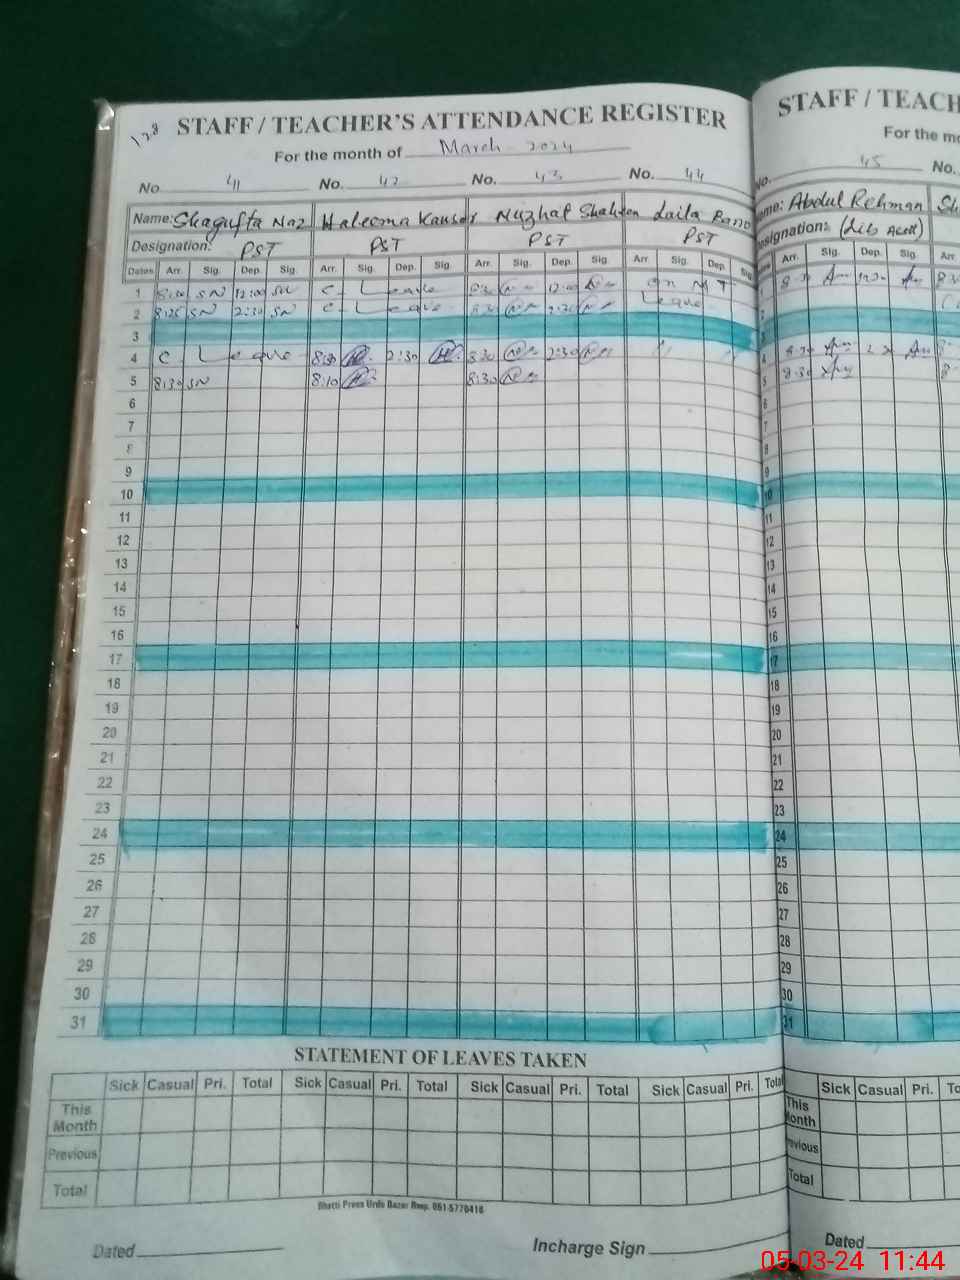 128
STAFF / TEACHER'S ATTENDANCE REGISTER
For the month of March 2024
No 41 No. 42 No. 43 No. 44
Name: Shagufta Naz Haleema Kauser Nuzhat Shaheen Laila Bano
Designation: PST PST PST PST
Dates Arr. Sig. Dep. Sig. Arr. Sig. Dep. Sig. Arr. Sig. Dep. Sig. Arr Sig. Dep. Sig
1 8:00 SN 12:00 SN C- Leave 8:30 12:00 on MT
2 8:25 SN 2:30 SN C- Leave 8:30 2:30 Leave
3
4 C- Leave 8:30 2:30 8:30 2:30 " "
5 8:30 SN 8:10 8:30
6
7
8
9
10
11
12
13
14
15
16
17
18
19
20
21
22
23
24
25
26
27
28
29
30
31
STATEMENT OF LEAVES TAKEN
Sick Casual Pri. Total Sick Casual Pri. Total Sick Casual Pri. Total Sick Casual Pri. Total
This Month
Previous
Total
Bhatti Press Urdu Bazar Rwp. 051-5770418
Dated Incharge Sign
STAFF / TEACH
For the mo
No. 45 No.
ame: Abdul Rehman Sh
esignation: (Lib Astt)
Arr. Sig. Dep. Sig. Arr
1 8:30 12:30 8:30
2
3
4 8:30
5 8:30
6
7
8
9
10
11
12
13
14
15
16
17
18
19
20
21
22
23
24
25
26
27
28
29
30
31
Sick Casual Pri. To
This Month
Previous
Total
Dated
05-03-24 11:44